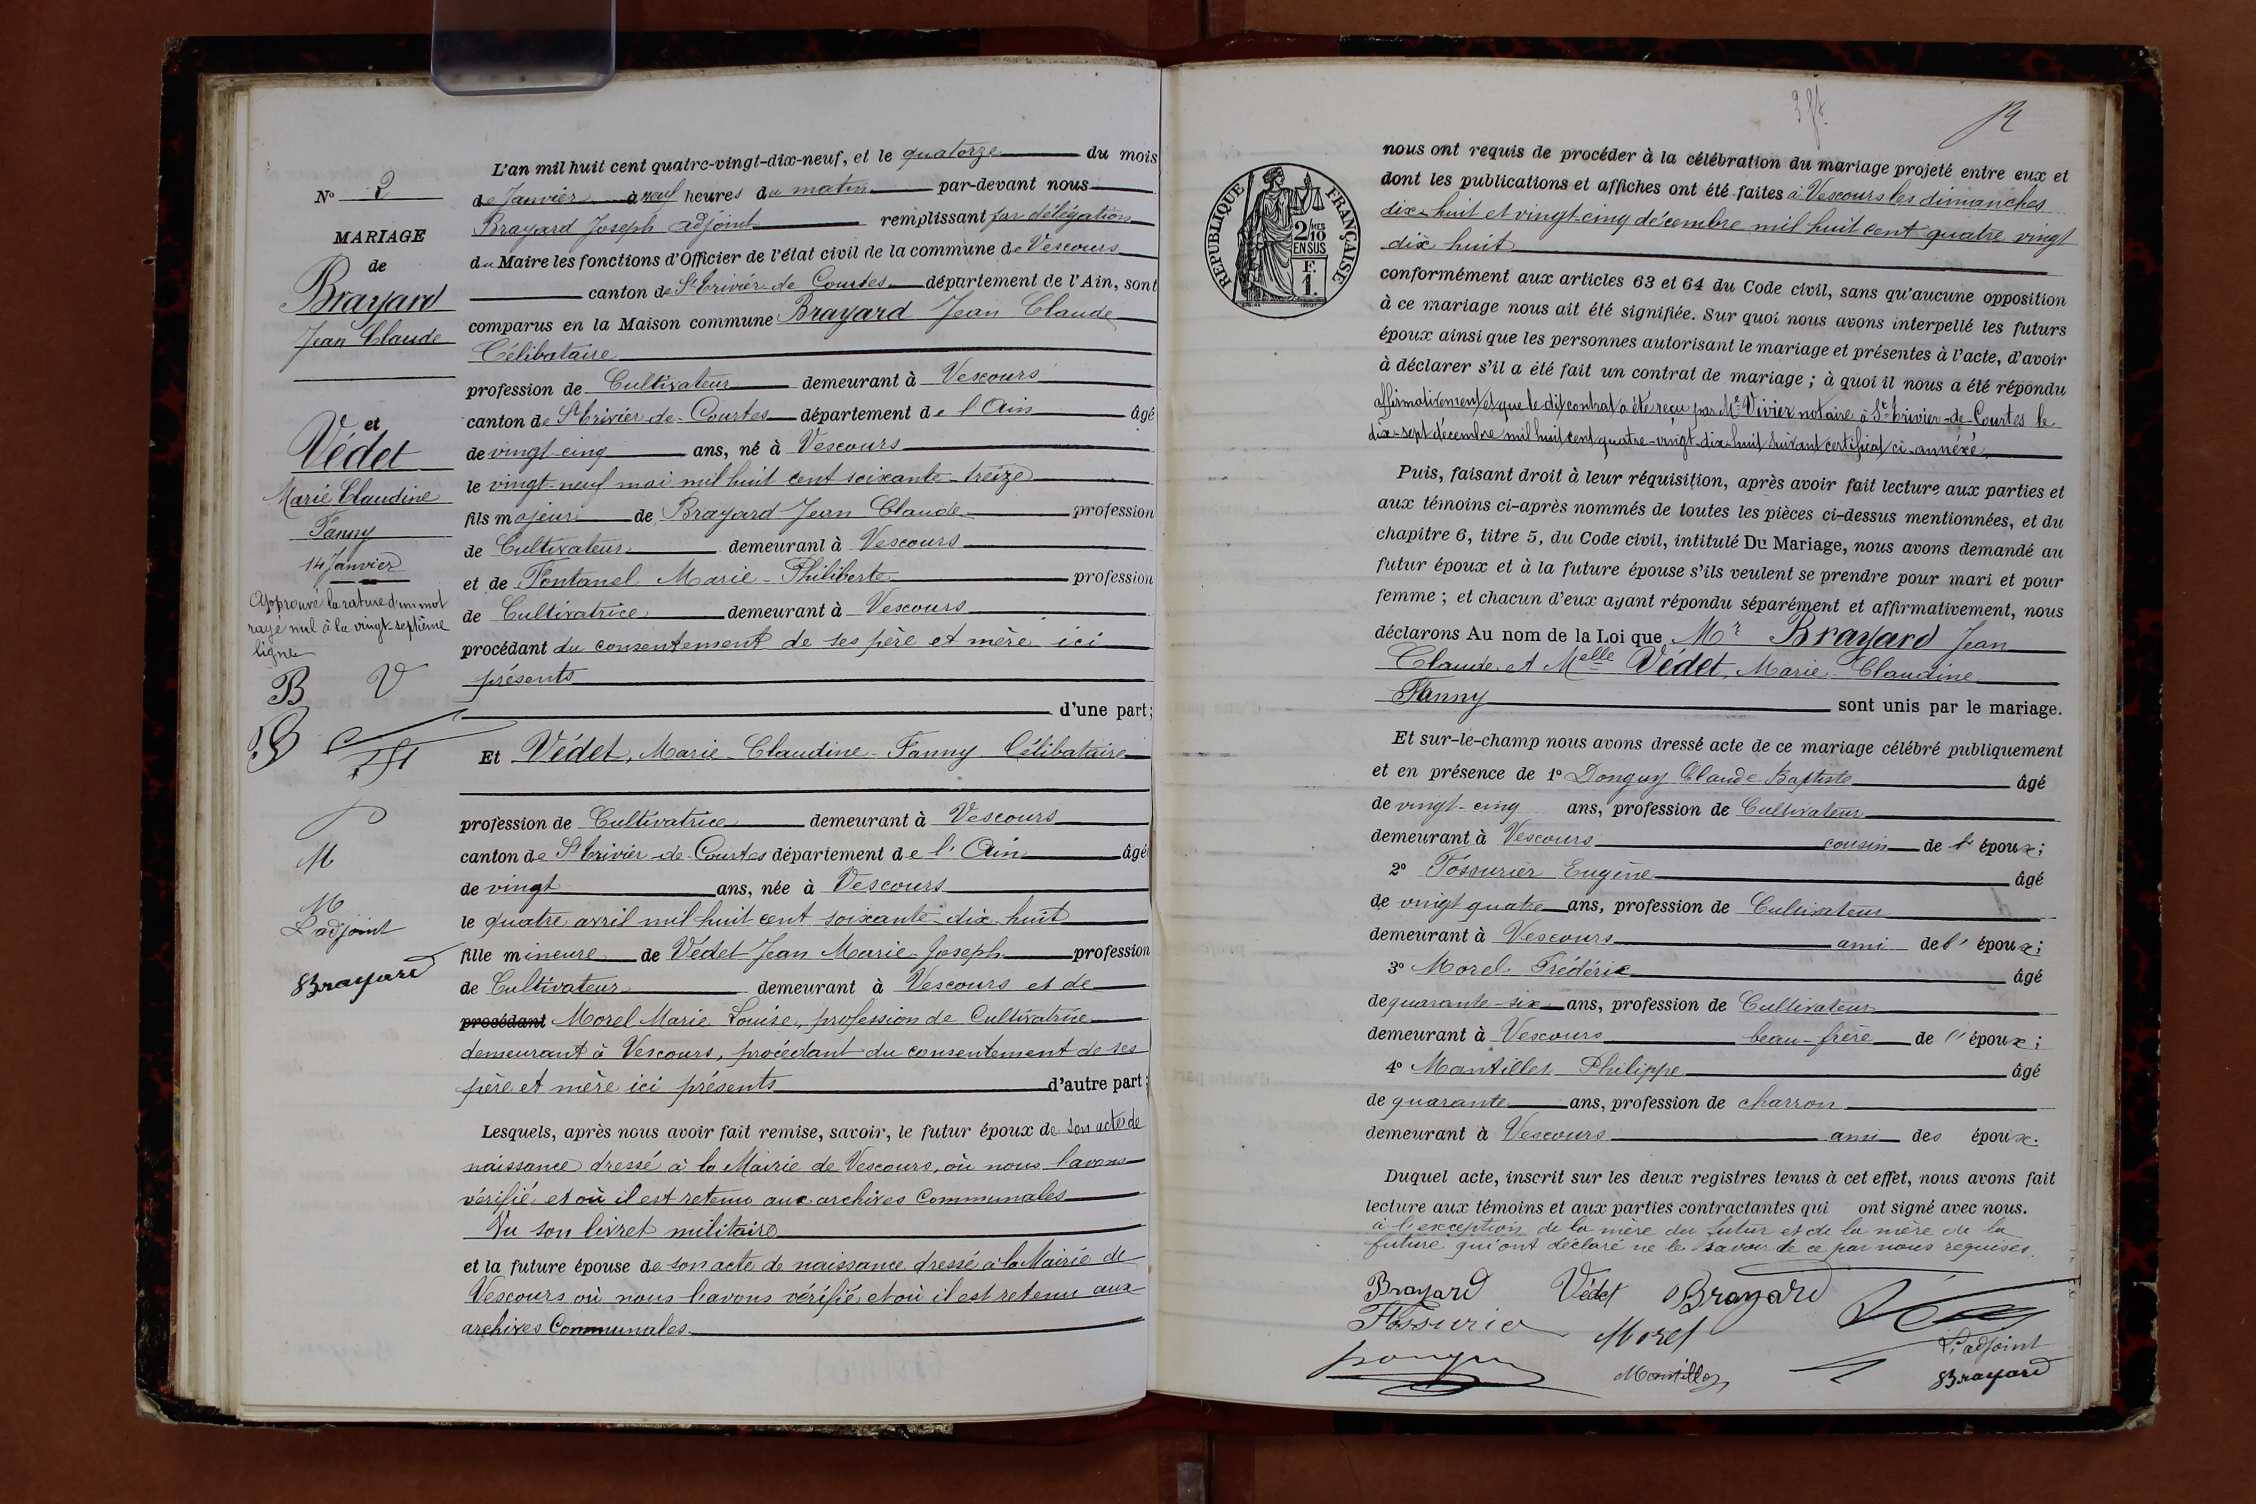 N° 2
MARIAGE
de
Brayard
Jean Claude
et
Védet
Marie Claudine
Fanny
14 Janvier
Approuvé la rature d'un mot
rayé nul à la vingt-septième
ligne
B V
B
M
M
L'adjoint
Brayard
L'an mil huit cent quatre-vingt-dix-neuf, et le quatorze du mois
de Janvier à neuf heures du matin par-devant nous
Brayard Joseph adjoint remplissant par délégation
du Maire les fonctions d'Officier de l'état civil de la commune de Vescours
canton de St Trivier-de-Courtes département de l'Ain, sont
comparus en la Maison commune Brayard Jean Claude
Célibataire
profession de Cultivateur demeurant à Vescours
canton de St Trivier-de-Courtes département de l'Ain âgé
de vingt-cinq ans, né à Vescours
le vingt-neuf mai mil huit cent soixante-treize
fils majeur de Brayard Jean Claude profession
de Cultivateur demeurant à Vescours
et de Fontanel Marie-Philiberte profession
de Cultivatrice demeurant à Vescours
procédant du consentement de ses père et mère ici
présents
d'une part;
Et Védet, Marie-Claudine-Fanny Célibataire
profession de Cultivatrice demeurant à Vescours
canton de St Trivier-de-Courtes département de l'Ain âgé
de vingt ans, née à Vescours
le quatre avril mil huit cent soixante-dix-huit
fille mineure de Védet Jean Marie-Joseph profession
de Cultivateur demeurant à Vescours et de
procédant Morel Marie Louise, profession de Cultivatrice
demeurant à Vescours, procédant du consentement de ses
père et mère ici présents d'autre part;
Lesquels, après nous avoir fait remise, savoir, le futur époux de son acte de
naissance dressé à la Mairie de Vescours, où nous l'avons
vérifié et où il est retenu aux archives Communales
Vu son livret militaire
et la future épouse de son acte de naissance dressé à la Mairie de
Vescours où nous l'avons vérifié et où il est retenu aux
archives Communales
REPUBLIQUE FRANÇAISE
2/10 MES
EN SUS
F.
1.
nous ont requis de procéder à la célébration du mariage projeté entre eux et
dont les publications et affiches ont été faites à Vescours les dimanches
dix-huit et vingt-cinq décembre mil huit cent quatre vingt
dix huit
conformément aux articles 63 et 64 du Code civil, sans qu'aucune opposition
à ce mariage nous ait été signifiée. Sur quoi nous avons interpellé les futurs
époux ainsi que les personnes autorisant le mariage et présentes à l'acte, d'avoir
à déclarer s'il a été fait un contrat de mariage ; à quoi il nous a été répondu
affirmativement et que le dit contrat a été reçu par Me Vivier notaire à St-Trivier-de-Courtes le
dix-sept décembre mil huit cent quatre-vingt-dix-huit suivant certificat ci-annéxé.
Puis, faisant droit à leur réquisition, après avoir fait lecture aux parties et
aux témoins ci-après nommés de toutes les pièces ci-dessus mentionnées, et du
chapitre 6, titre 5, du Code civil, intitulé Du Mariage, nous avons demandé au
futur époux et à la future épouse s'ils veulent se prendre pour mari et pour
femme ; et chacun d'eux ayant répondu séparément et affirmativement, nous
déclarons Au nom de la Loi que Mr Brayard Jean
Claude et Melle Védet, Marie-Claudine
Fanny sont unis par le mariage.
Et sur-le-champ nous avons dressé acte de ce mariage célébré publiquement
et en présence de 1° Donguy Claude-Baptiste âgé
de vingt-cinq ans, profession de Cultivateur
demeurant à Vescours cousin de l' époux;
2° Fossurier Eugène âgé
de vingt quatre ans, profession de Cultivateur
demeurant à Vescours ami de l' époux;
3° Morel Frédéric âgé
de quarante-six ans, profession de Cultivateur
demeurant à Vescours beau-frère de l' époux;
4° Mantillet Philippe âgé
de quarante ans, profession de charron
demeurant à Vescours ami des époux.
Duquel acte, inscrit sur les deux registres tenus à cet effet, nous avons fait
lecture aux témoins et aux parties contractantes qui ont signé avec nous.
à l'exception de la mère du futur et de la mère de la
future qui ont déclaré ne le savoir de ce par nous requises.
Brayard Védet Brayard
Fossurier Morel
L'adjoint
Donguy Mantillet Brayard